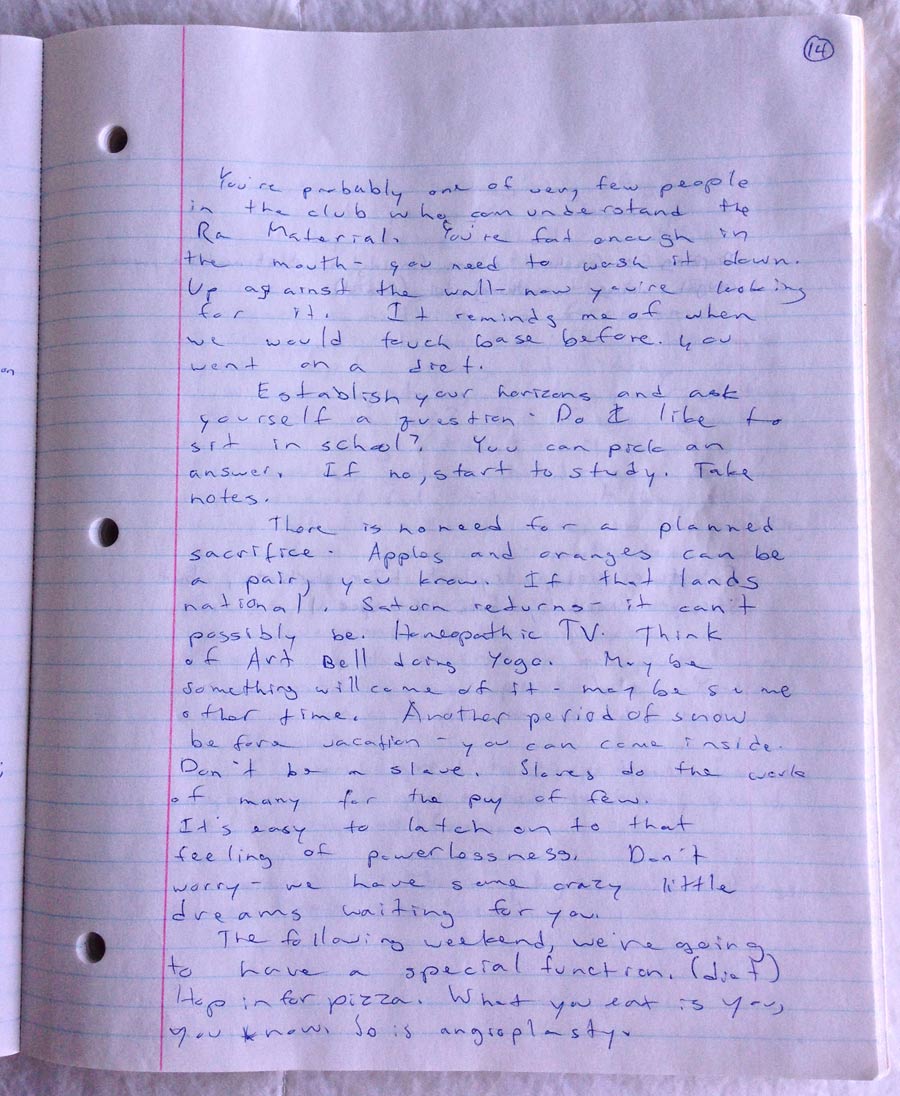 14
You're probably one of very few people
in the club who can understand the
Ra Material. You're fat enough in
the mouth - you need to wash it down.
Up against the wall - now you're looking
for it. It reminds me of when
we would touch base before you
went on a diet.
Establish your horizons and ask
yourself a question - Do I like to
sit in school? You can pick an
answer. If no, start to study. Take
notes.
There is no need for a planned
sacrifice. Apples and oranges can be
a pair, you know. If that lands
national. Saturn returns - it can't
possibly be. Homeopathic TV. Think
of Art Bell doing Yoga. Maybe
something will come of it - maybe some
other time. Another period of snow
before vacation - you can come inside.
Don't be a slave. Slaves do the work
of many for the pay of few.
It's easy to latch on to that
feeling of powerlessness. Don't
worry - we have some crazy little
dreams waiting for you.
The following weekend, we're going
to have a special function. (diet)
Hop in for pizza. What you eat is you,
you know. So is angioplasty.
on